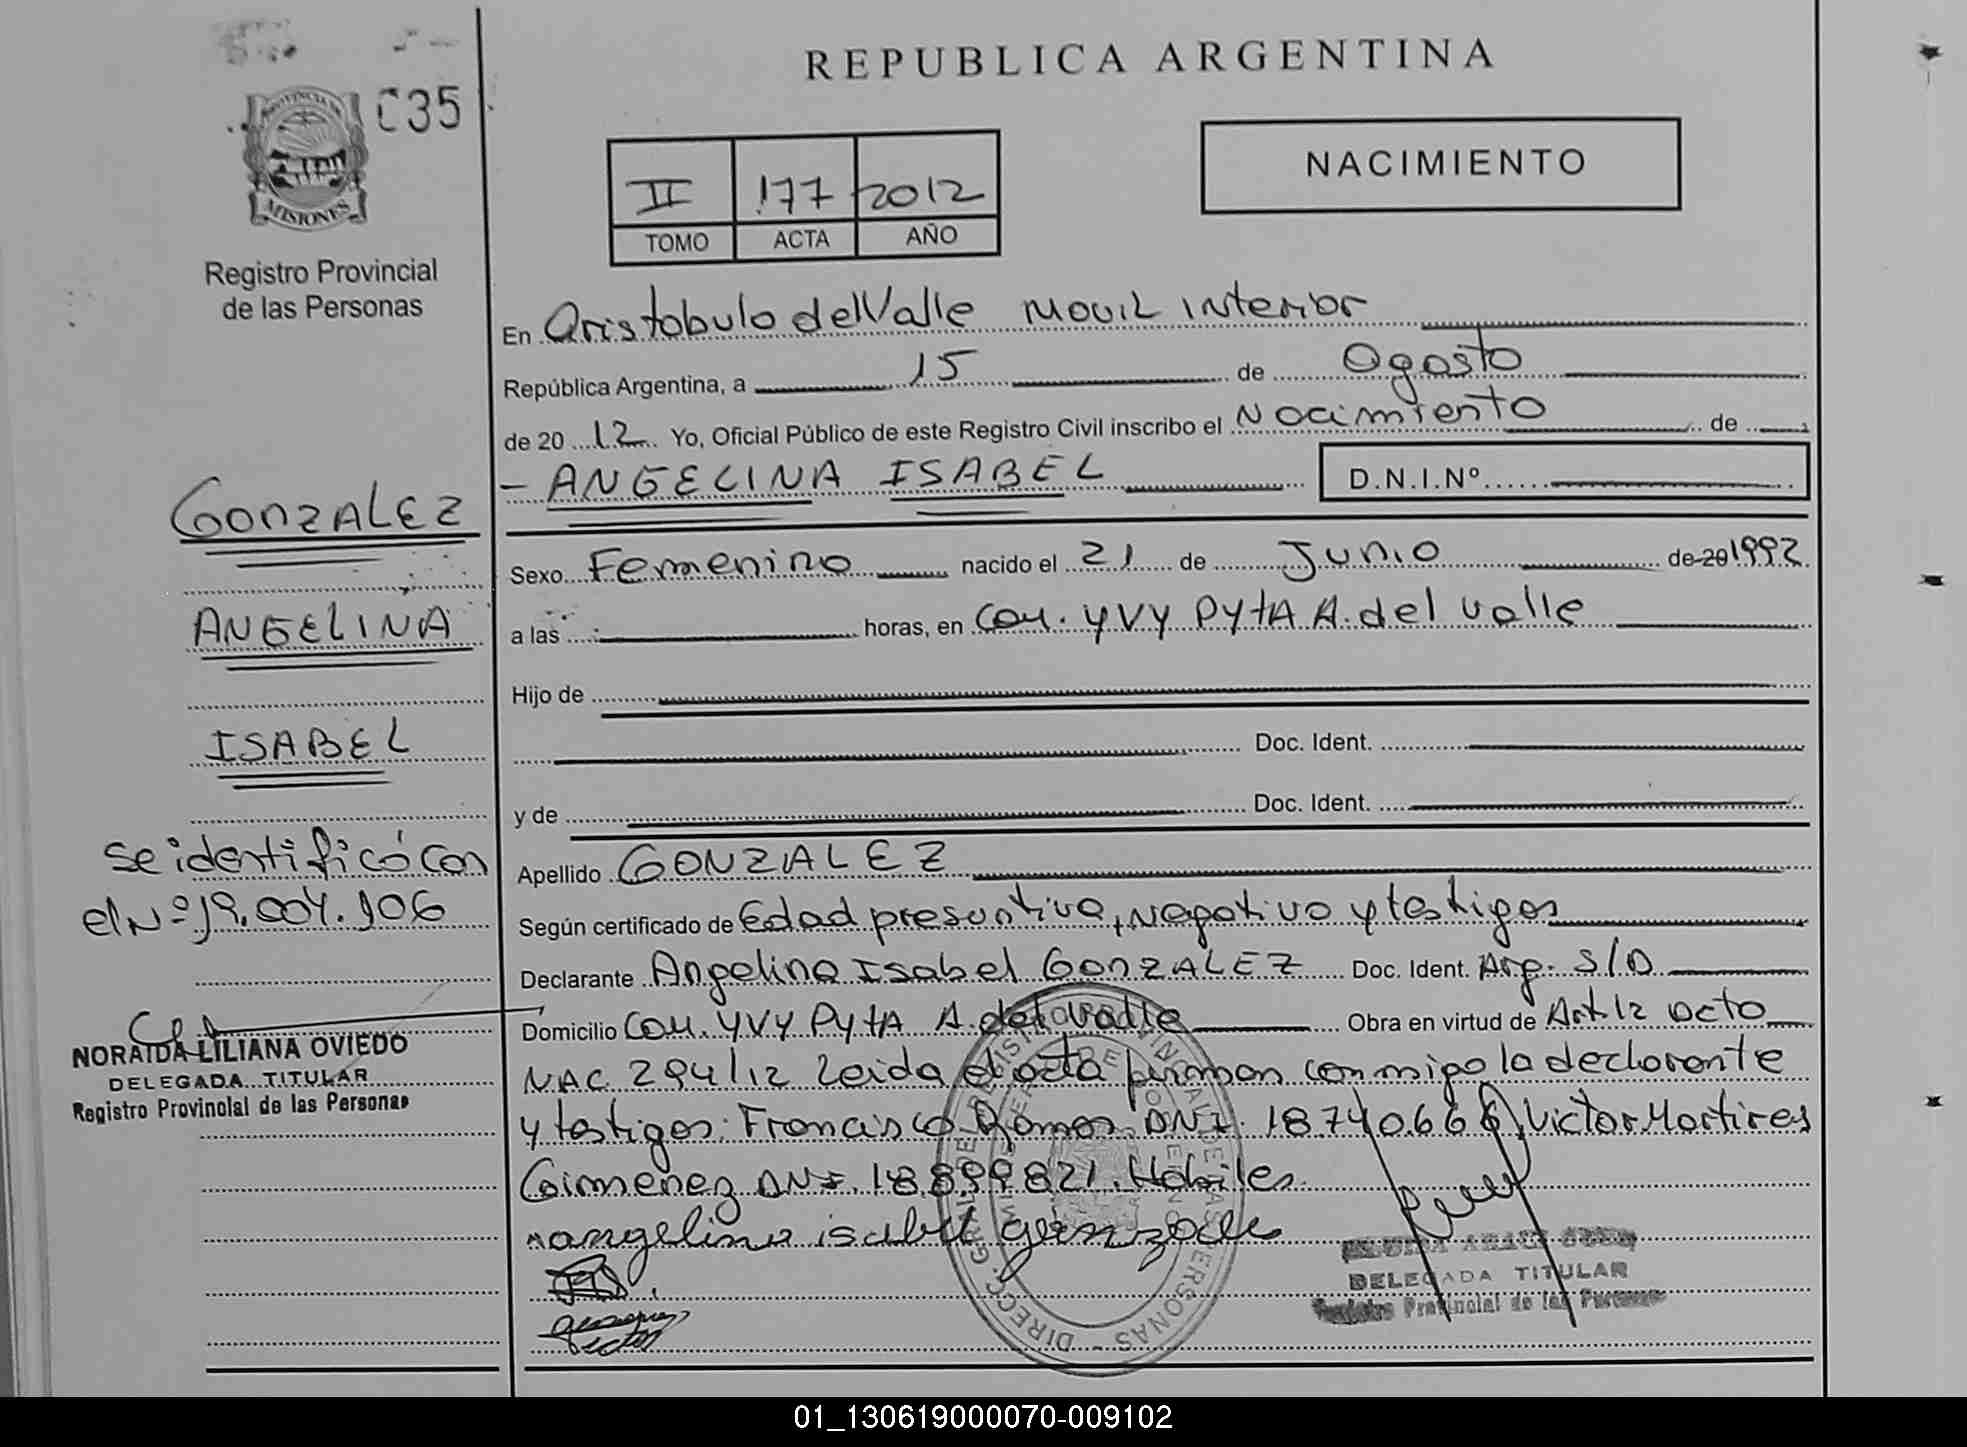 REPUBLICA ARGENTINA
C35
PROVINCIA DE
MISIONES
Registro Provincial
de las Personas
NACIMIENTO
II 177 2012
TOMO ACTA AÑO
En Aristobulo del Valle Movil interior
República Argentina, a 15 de Agosto
de 20 12 Yo, Oficial Público de este Registro Civil inscribo el Nacimiento de
- ANGELINA ISABEL D.N.I.Nº
Sexo Femenino nacido el 21 de Junio de 20 1992
a las : horas, en Com. YVY PYtA A. del valle
Hijo de
Doc. Ident.
y de Doc. Ident.
Apellido GONZALEZ
Según certificado de Edad presuntiva, negativo y testigos
Declarante Angelina Isabel GONZALEZ Doc. Ident. Arg. S/D
Domicilio Com. YVY PytA A. del valle Obra en virtud de Art 12 Dcto
NAC 294/12 Leida el acta firman conmigo la declarante
y testigos: Francisco Ramos DNI 18.740.666, Victor Martires
Gimenez DNI 18.899.821. Habiles
angelina isabel
DELEGADA TITULAR
Registro Provincial de las Personas
GONZALEZ
ANGELINA
ISABEL
Se identificó con
el Nº 19.004.906
NORAIDA LILIANA OVIEDO
DELEGADA TITULAR
Registro Provincial de las Personas
01_130619000070-009102